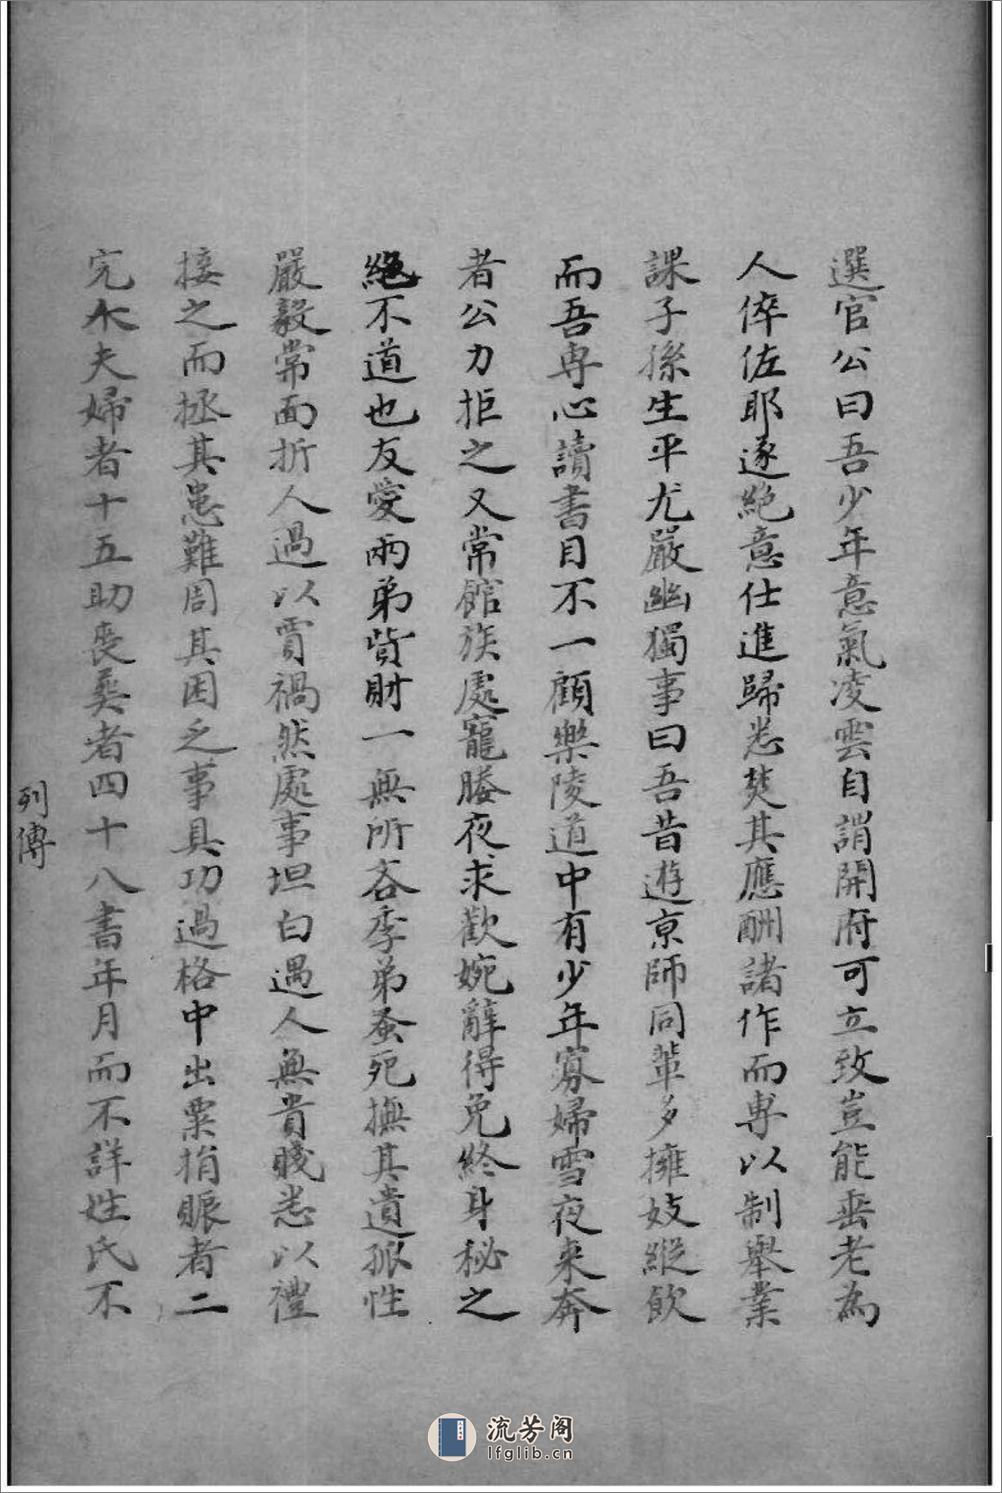 選官公曰吾少年意氣凌雲自謂開府可立致豈能垂老為
人倅佐耶遂絕意仕進歸悉焚其應酬諸作而專以制舉業
課子孫生平尤嚴幽獨事曰吾昔遊京師同輩多擁妓縱飲
而吾專心讀書目不一顧樂陵道中有少年寡婦雪夜来奔
者公力拒之又常館族處寵媵夜求歡婉辭得免終身秘之
絕不道也友愛兩弟貲財一無所吝季弟蚤死撫其遺孤性
嚴毅常面折人過以賈禍然處事坦白遇人無貴賤悉以禮
接之而拯其患難周其困乏事具功過格中出粟捐賑者二
完人夫婦者十五助喪葬者四十八書年月而不詳姓氏不
列傳
流芳阁
lfglib.cn